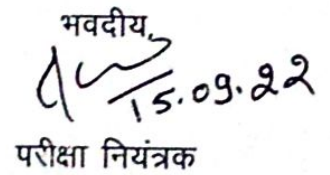 भवदीय,
15.09.22
परीक्षा नियंत्रक